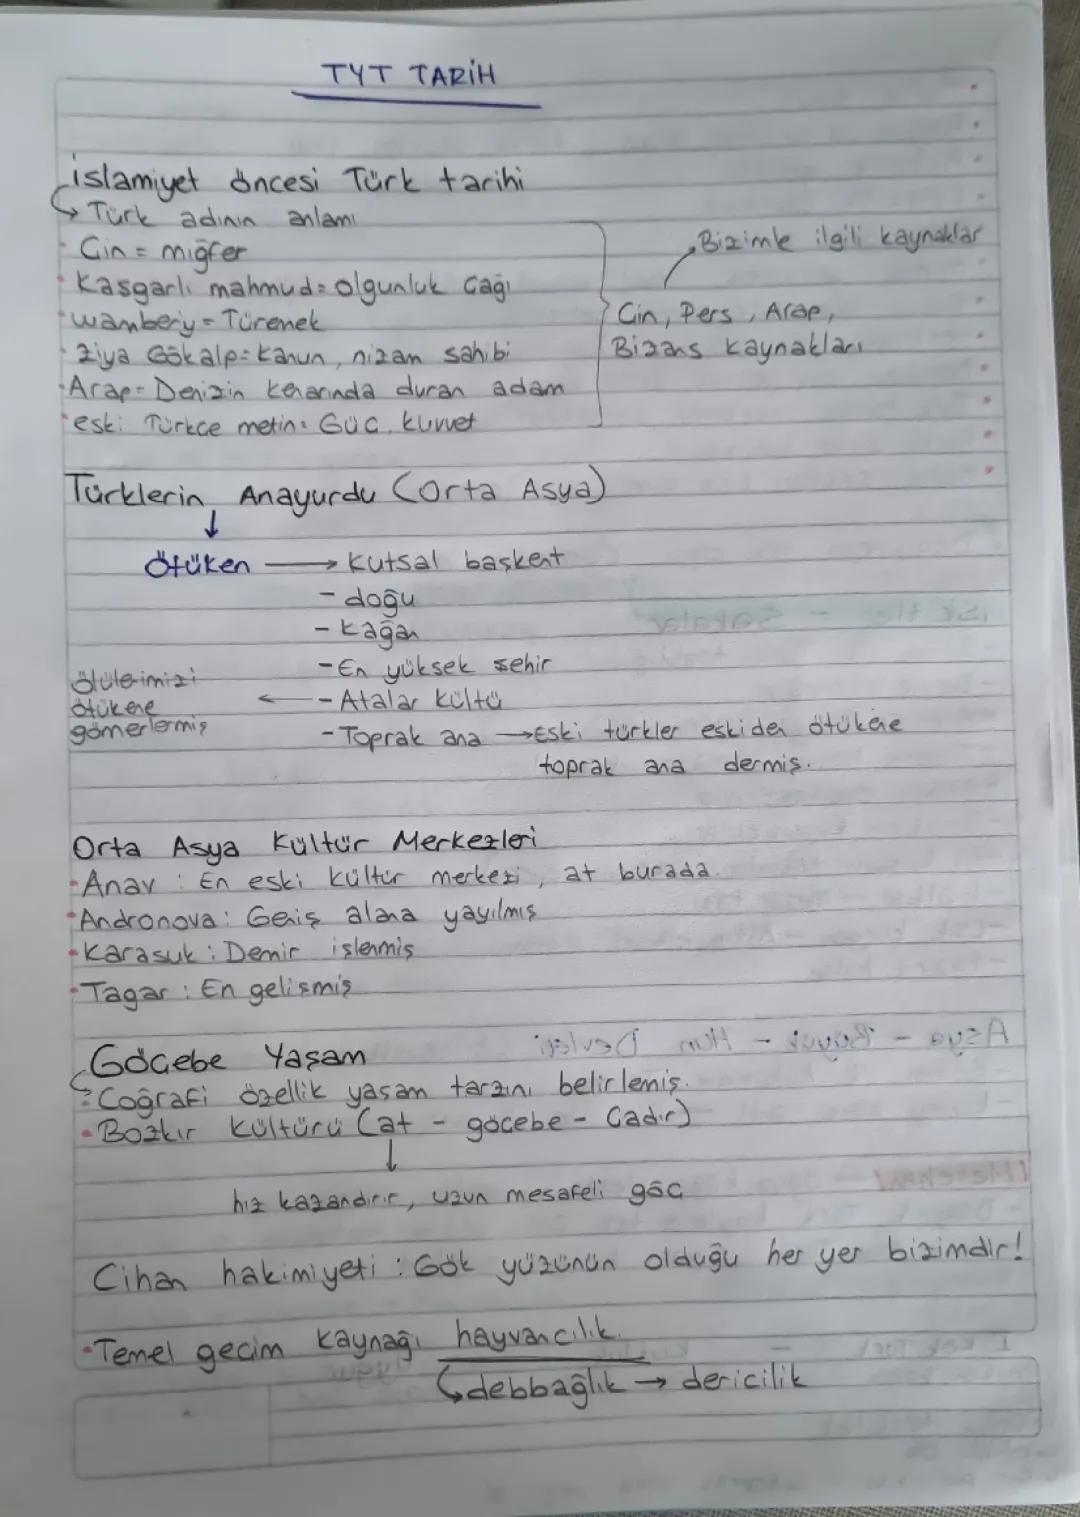 TYT TARİH
İslamiyet öncesi Türk tarihi
Türk adının anlamı
Çin = miğfer
Kasgarlı mahmud = olgunluk Çağı
wambery = Türemek
Ziya Gökalp = kanun, nizam sahibi
Arap = Denizin kenarında duran adam
eski Türkçe metin = Güç, kuvvet
Bizimle ilgili kaynaklar
Çin, Pers, Arap,
Bizans kaynakları
Türklerin Anayurdu (Orta Asya)
Ötüken → kutsal başkent
- doğu
- kağan
- En yüksek şehir
- Atalar kültü
ölülerimizi
ötükene
gömerlermiş
- Toprak ana → Eski türkler eskiden ötükene
toprak ana dermiş.
Orta Asya Kültür Merkezleri
Anav : En eski kültür merkezi, at burada.
Andronova : Geniş alana yayılmış
Karasuk : Demir işlenmiş
Tagar : En gelişmiş
Göçebe Yaşam
Coğrafi özellik yaşam tarzını belirlemiş.
Bozkır kültürü (at - göçebe - Çadır)
hız kazandırır, uzun mesafeli göç
Cihan hakimiyeti : Gök yüzünün olduğu her yer bizimdir!
Temel geçim kaynağı hayvancılık.
debbağlık → dericilik